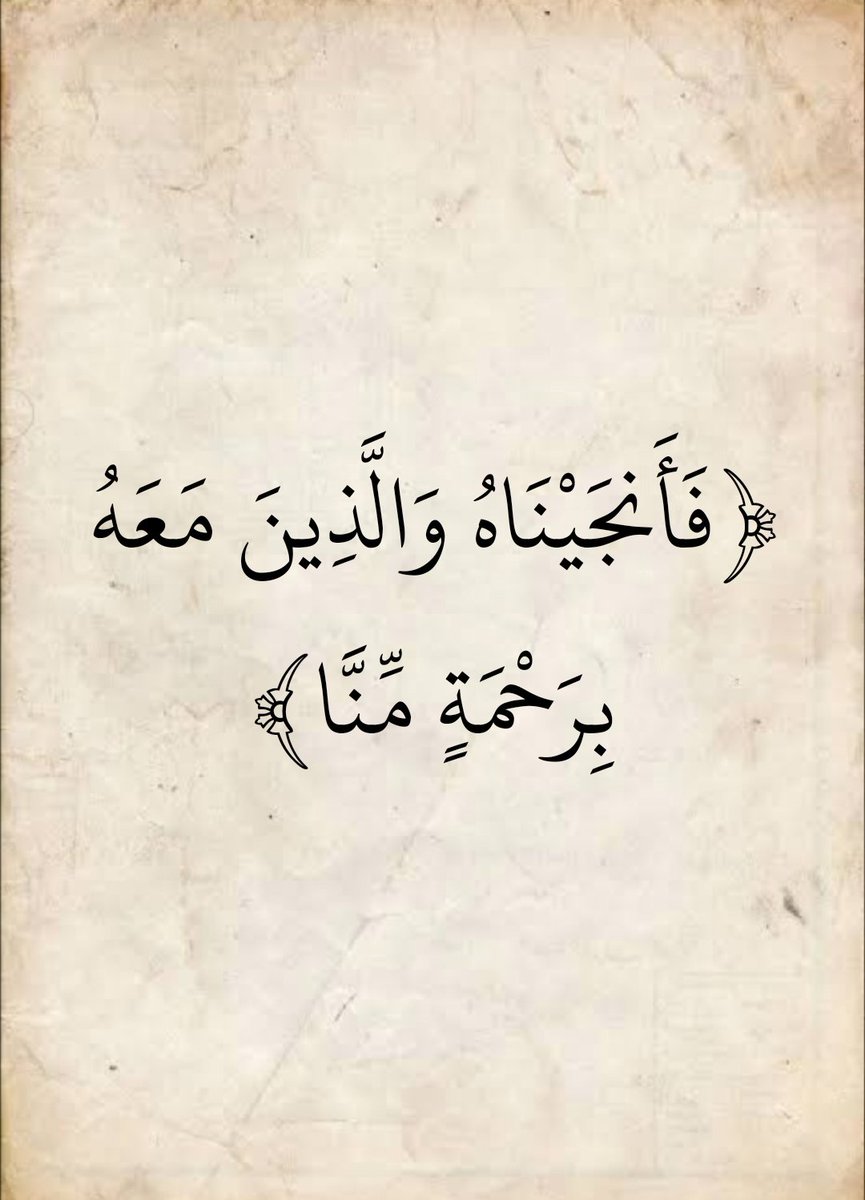 ﴿فَأَنجَيْنَاهُ وَالَّذِينَ مَعَهُ
بِرَحْمَةٍ مِّنَّا﴾